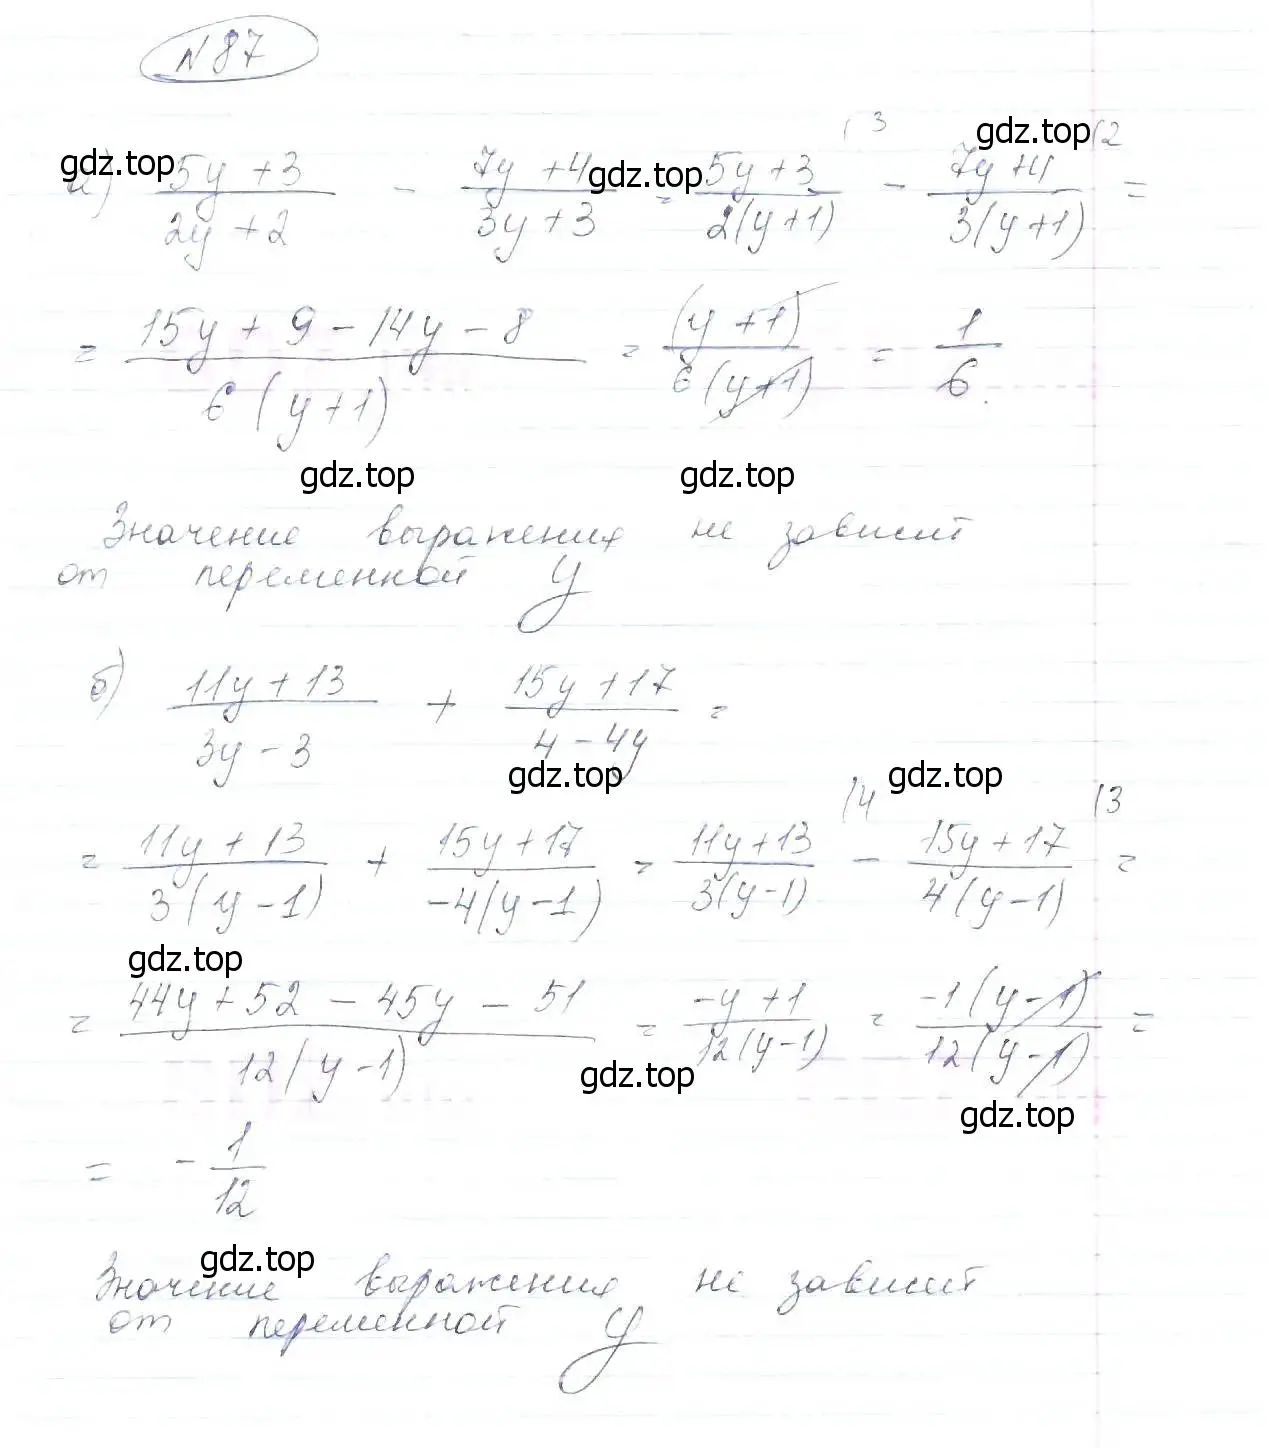 № 87
а) (5y + 3)/(2y + 2) - (7y + 4)/(3y + 3) = (5y + 3)/(2(y+1)) (3 - (7y + 4)/(3(y+1)) (2 =
= (15y + 9 - 14y - 8)/(6(y+1)) = (y + 1)/(6(y+1)) = 1/6.
Значение выражения не зависит
от переменной y
б) (11y + 13)/(3y - 3) + (15y + 17)/(4 - 4y) =
= (11y + 13)/(3(y - 1)) + (15y + 17)/(-4(y - 1)) = (11y + 13)/(3(y - 1)) (4 - (15y + 17)/(4(y - 1)) (3 =
= (44y + 52 - 45y - 51)/(12(y - 1)) = (-y + 1)/(12(y - 1)) = (-1(y - 1))/(12(y - 1)) =
= - 1/12
Значение выражения не зависит
от переменной y
gdz.top
gdz.top
gdz.top
gdz.top
gdz.top
gdz.top
gdz.top
gdz.top
gdz.top
gdz.top
gdz.top